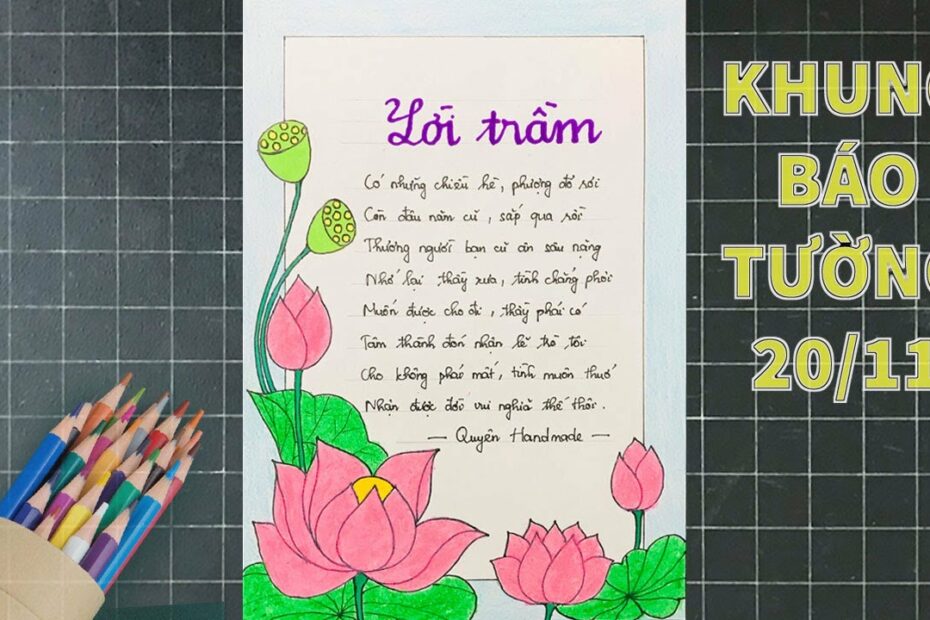 Lời trầm
Có những chiều hè, phượng đỏ rơi
Còn đâu năm cũ, sắp qua rồi
Thương người bạn cũ ân sâu nặng
Nhớ lại thầy xưa, tình chẳng phôi
Muốn được cho đi, thầy phải có
Tâm thành đón nhận lẽ trò tôi
Cho không phải mất, tình muôn thuở
Nhận được đời vui nghĩa thế thôi.
— Quyên Handmade —
KHUNG
BÁO
TƯỜNG
20/11